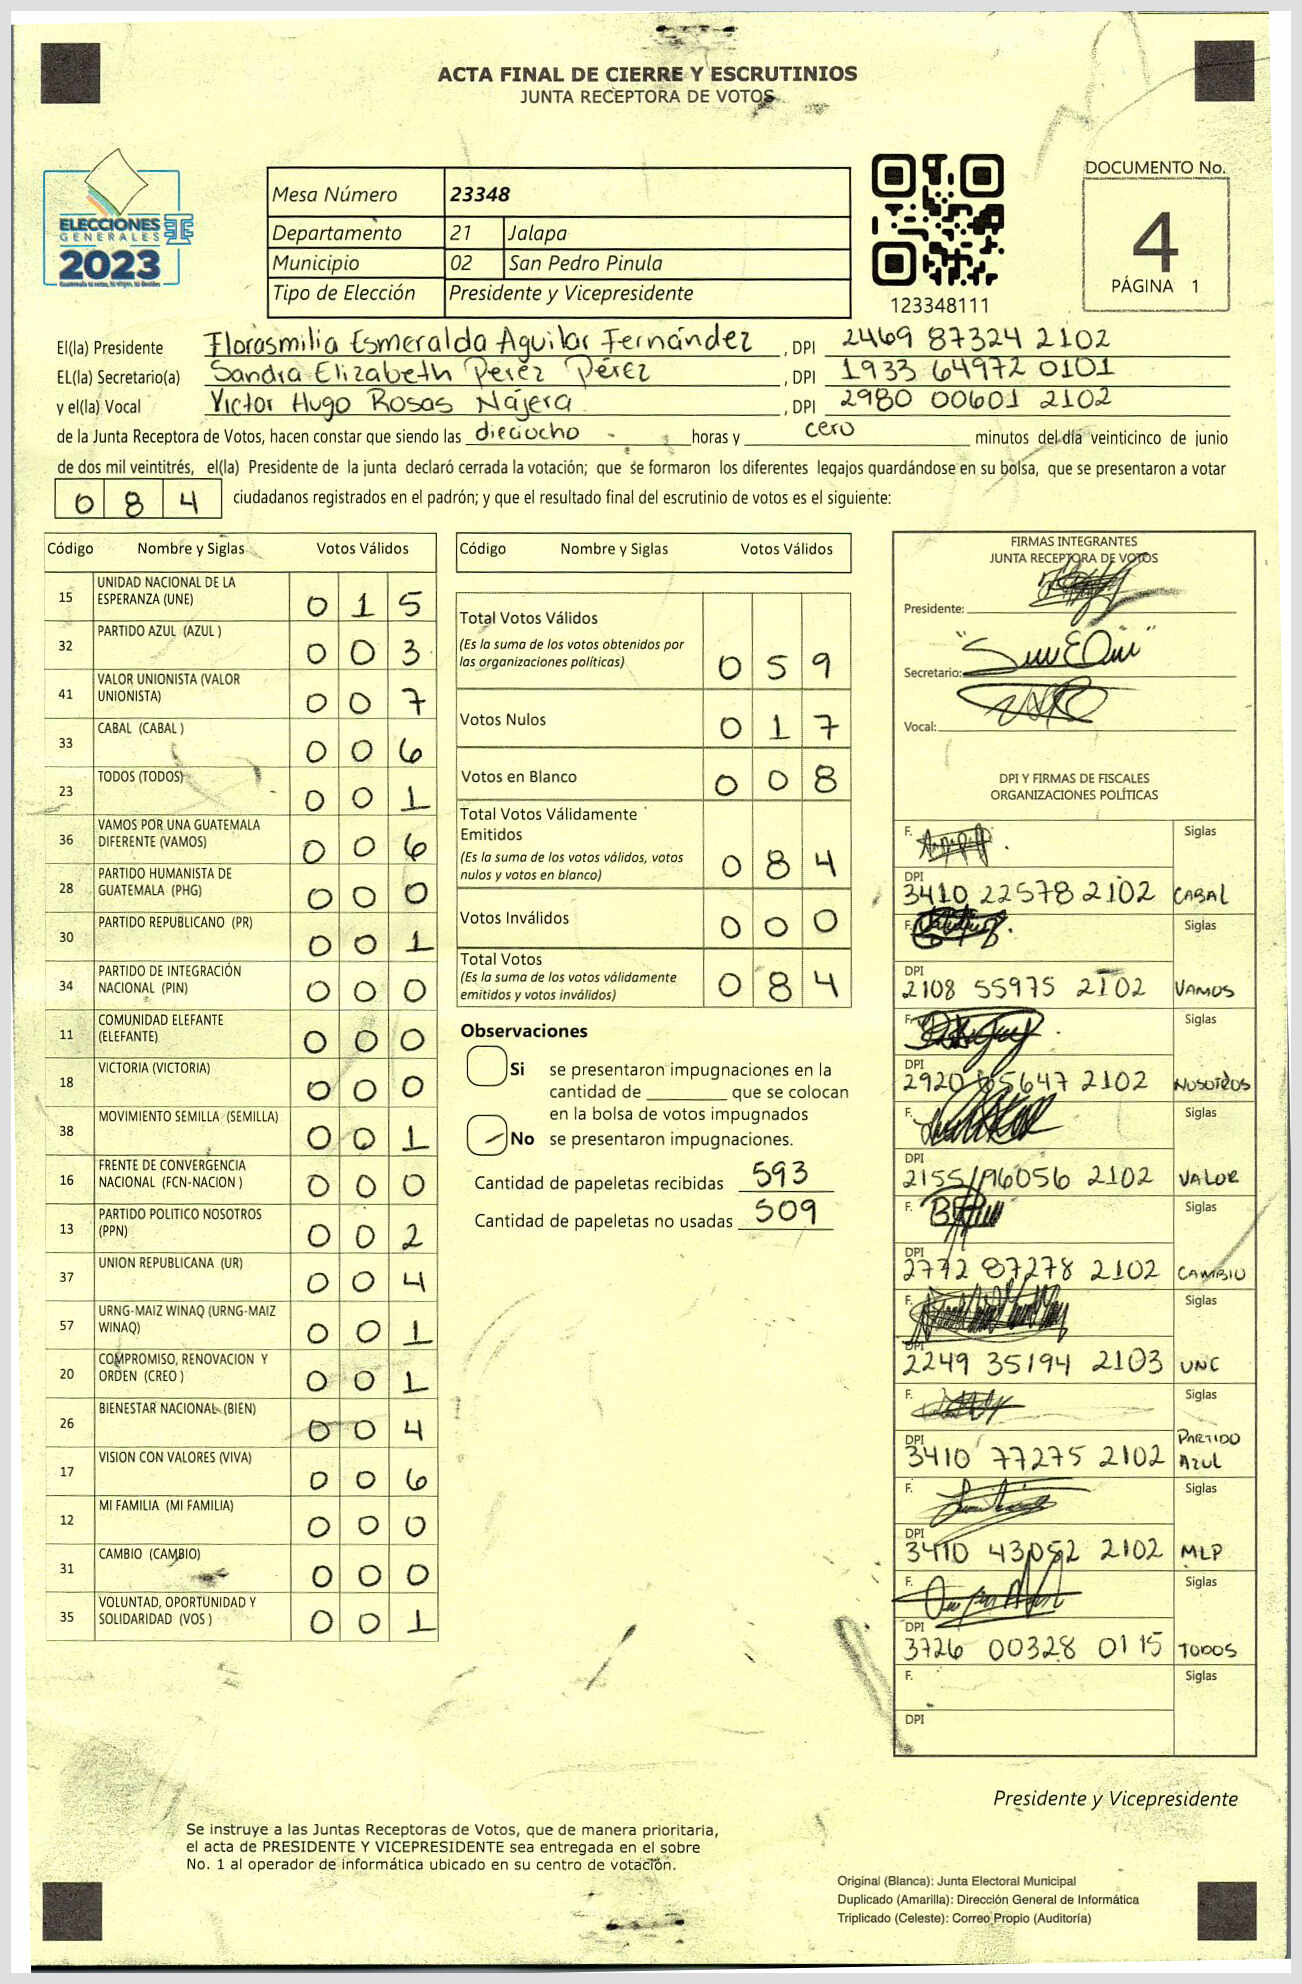 ACTA FINAL DE CIERRE Y ESCRUTINIOS
JUNTA RECEPTORA DE VOTOS
ELECCIONES
GENERALES
2023
Mesa Número 23348
Departamento 21 Jalapa
Municipio 02 San Pedro Pinula
Tipo de Elección Presidente y Vicepresidente
123348111
DOCUMENTO No.
4
PÁGINA 1
El(la) Presidente Florasmilia Esmeralda Aguilar Fernández , DPI 2469 87324 2102
EL(la) Secretario(a) Sandra Elizabeth Perez Pérez , DPI 1933 64972 0101
y el(la) Vocal Victor Hugo Rosas Nájera , DPI 2980 00601 2102
de la Junta Receptora de Votos, hacen constar que siendo las dieciocho horas y cero minutos del día veinticinco de junio
de dos mil veintitrés, el(la) Presidente de la junta declaró cerrada la votación; que se formaron los diferentes legajos guardándose en su bolsa, que se presentaron a votar
0 8 4 ciudadanos registrados en el padrón; y que el resultado final del escrutinio de votos es el siguiente:
Código Nombre y Siglas Votos Válidos
15 UNIDAD NACIONAL DE LA ESPERANZA (UNE) 0 1 5
32 PARTIDO AZUL (AZUL ) 0 0 3
41 VALOR UNIONISTA (VALOR UNIONISTA) 0 0 7
33 CABAL (CABAL ) 0 0 6
23 TODOS (TODOS) 0 0 1
36 VAMOS POR UNA GUATEMALA DIFERENTE (VAMOS) 0 0 6
28 PARTIDO HUMANISTA DE GUATEMALA (PHG) 0 0 0
30 PARTIDO REPUBLICANO (PR) 0 0 1
34 PARTIDO DE INTEGRACIÓN NACIONAL (PIN) 0 0 0
11 COMUNIDAD ELEFANTE (ELEFANTE) 0 0 0
18 VICTORIA (VICTORIA) 0 0 0
38 MOVIMIENTO SEMILLA (SEMILLA) 0 0 1
16 FRENTE DE CONVERGENCIA NACIONAL (FCN-NACION ) 0 0 0
13 PARTIDO POLITICO NOSOTROS (PPN) 0 0 2
37 UNION REPUBLICANA (UR) 0 0 4
57 URNG-MAIZ WINAQ (URNG-MAIZ WINAQ) 0 0 1
20 COMPROMISO, RENOVACION Y ORDEN (CREO ) 0 0 1
26 BIENESTAR NACIONAL (BIEN) 0 0 4
17 VISION CON VALORES (VIVA) 0 0 6
12 MI FAMILIA (MI FAMILIA) 0 0 0
31 CAMBIO (CAMBIO) 0 0 0
35 VOLUNTAD, OPORTUNIDAD Y SOLIDARIDAD (VOS ) 0 0 1
Código Nombre y Siglas Votos Válidos
Total Votos Válidos
(Es la suma de los votos obtenidos por
las organizaciones políticas) 0 5 9
Votos Nulos 0 1 7
Votos en Blanco 0 0 8
Total Votos Válidamente
Emitidos
(Es la suma de los votos válidos, votos
nulos y votos en blanco) 0 8 4
Votos Inválidos 0 0 0
Total Votos
(Es la suma de los votos válidamente
emitidos y votos inválidos) 0 8 4
Observaciones
Si se presentaron impugnaciones en la
cantidad de ________ que se colocan
en la bolsa de votos impugnados
No se presentaron impugnaciones.
Cantidad de papeletas recibidas 593
Cantidad de papeletas no usadas 509
FIRMAS INTEGRANTES
JUNTA RECEPTORA DE VOTOS
Presidente:
Secretario:
Vocal:
DPI Y FIRMAS DE FISCALES
ORGANIZACIONES POLÍTICAS
F. Siglas
DPI
3410 22578 2102 CABAL
F. Siglas
DPI
2108 55975 2102 VAMOS
F. Siglas
DPI
2920 05647 2102 NOSOTROS
F. Siglas
DPI
2155 96056 2102 VALOR
F. Siglas
DPI
2772 87278 2102 CAMBIO
F. Siglas
DPI
2249 35194 2103 UNC
F. Siglas
DPI
3410 77275 2102 PARTIDO AZUL
F. Siglas
DPI
3410 43052 2102 MLP
F. Siglas
DPI
3726 00328 0115 TODOS
F. Siglas
DPI
Presidente y Vicepresidente
Se instruye a las Juntas Receptoras de Votos, que de manera prioritaria,
el acta de PRESIDENTE Y VICEPRESIDENTE sea entregada en el sobre
No. 1 al operador de informática ubicado en su centro de votación.
Original (Blanca): Junta Electoral Municipal
Duplicado (Amarilla): Dirección General de Informática
Triplicado (Celeste): Correo Propio (Auditoría)